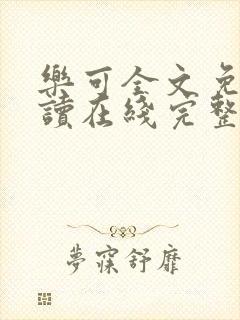 樂可全文免
讀在綫完整
夢寐舒靡